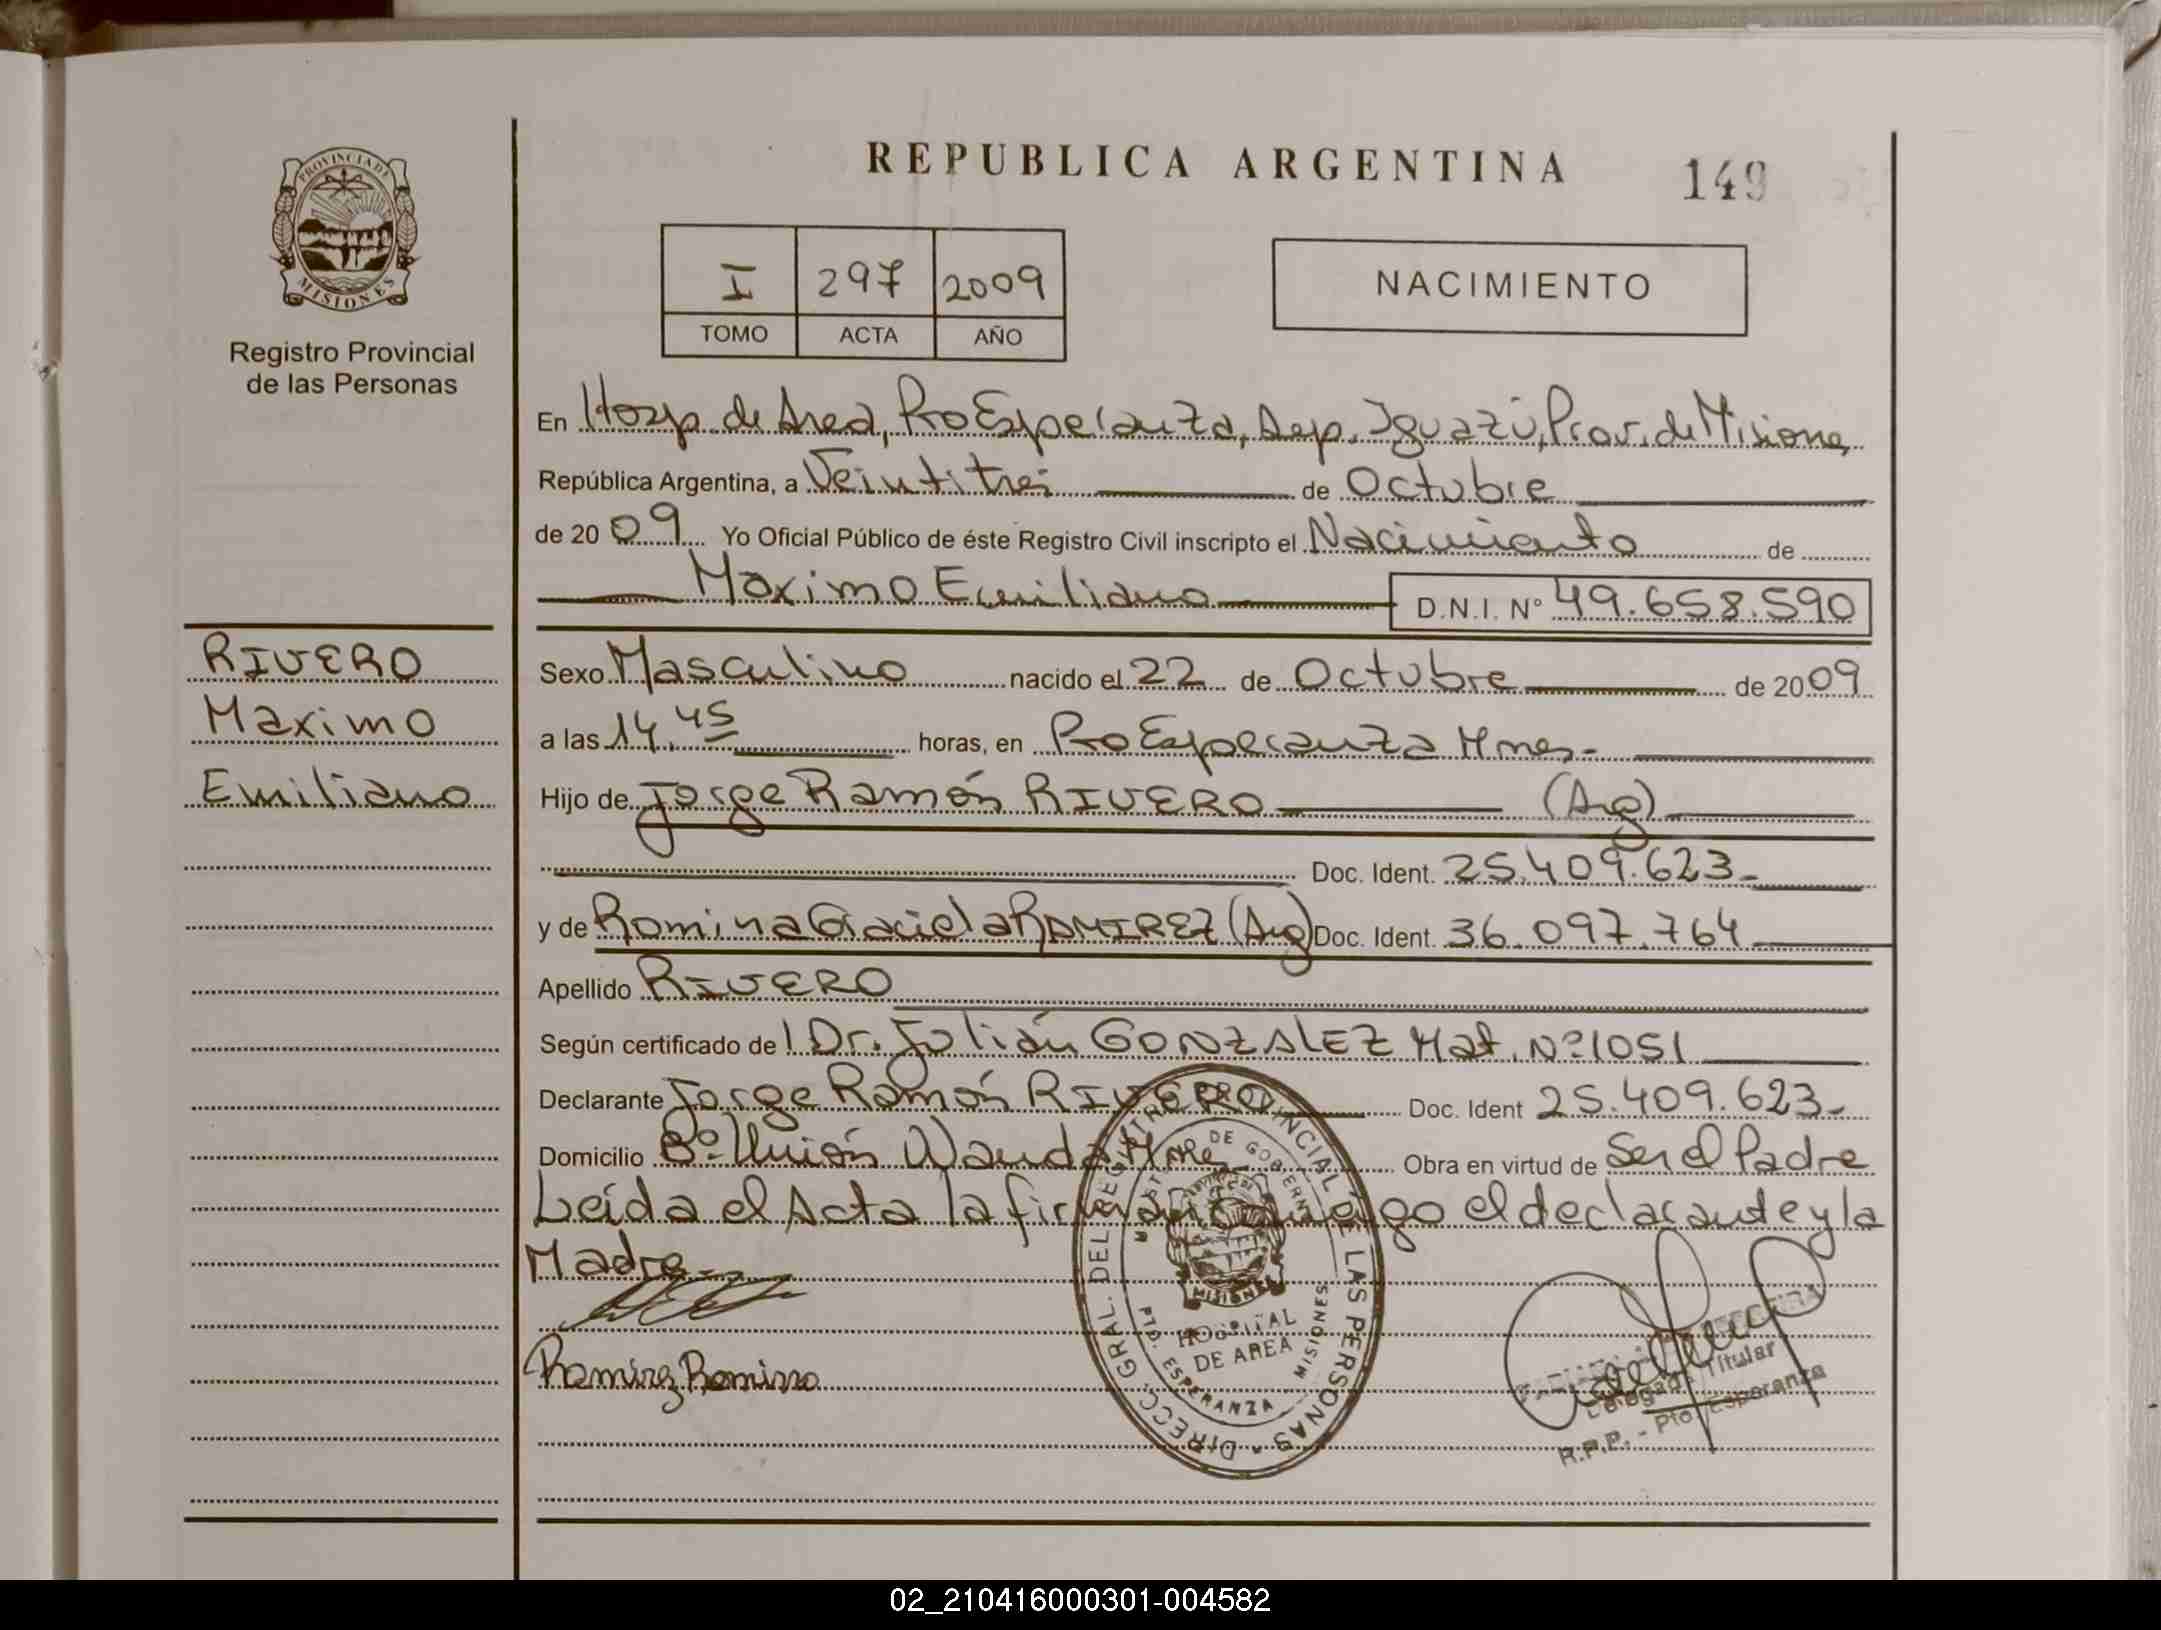 REPUBLICA ARGENTINA
149
PROVINCIA DE
MISIONES
Registro Provincial
de las Personas
I 297 2009
TOMO ACTA AÑO
NACIMIENTO
En Hosp. de Area, Pto Esperanza, Dep. Iguazú, Prov. de Misiones
República Argentina, a Veintitres de Octubre
de 2009 Yo Oficial Público de éste Registro Civil inscripto el Nacimiento de
Maximo Emiliano D.N.I. Nº 49.658.590
RIVERO
Maximo
Emiliano
Sexo Masculino nacido el 22 de Octubre de 2009
a las 14,45 horas, en Pto Esperanza Mnes.
Hijo de Jorge Ramón RIVERO (Arg)
Doc. Ident. 25.409.623
y de Romina Graciela RAMIREZ (Arg) Doc. Ident. 36.097.764
Apellido RIVERO
Según certificado del Dr. Julián GONZALEZ Mat. Nº 1051
Declarante Jorge Ramón RIVERO Doc. Ident 25.409.623
Domicilio Bº Unión Wanda Mnes Obra en virtud de Ser el Padre
Leida el Acta la firman conmigo el declarante y la
Madre
Ramirez Romina
DIRECC. GRAL. DEL REGISTRO PROVINCIAL DE LAS PERSONAS
MINISTERIO DE GOBIERNO
MISIONES
HOSPITAL
DE AREA
PTO. ESPERANZA MISIONES
Delegada Titular
R.P.P. - Pto. Esperanza
02_210416000301-004582